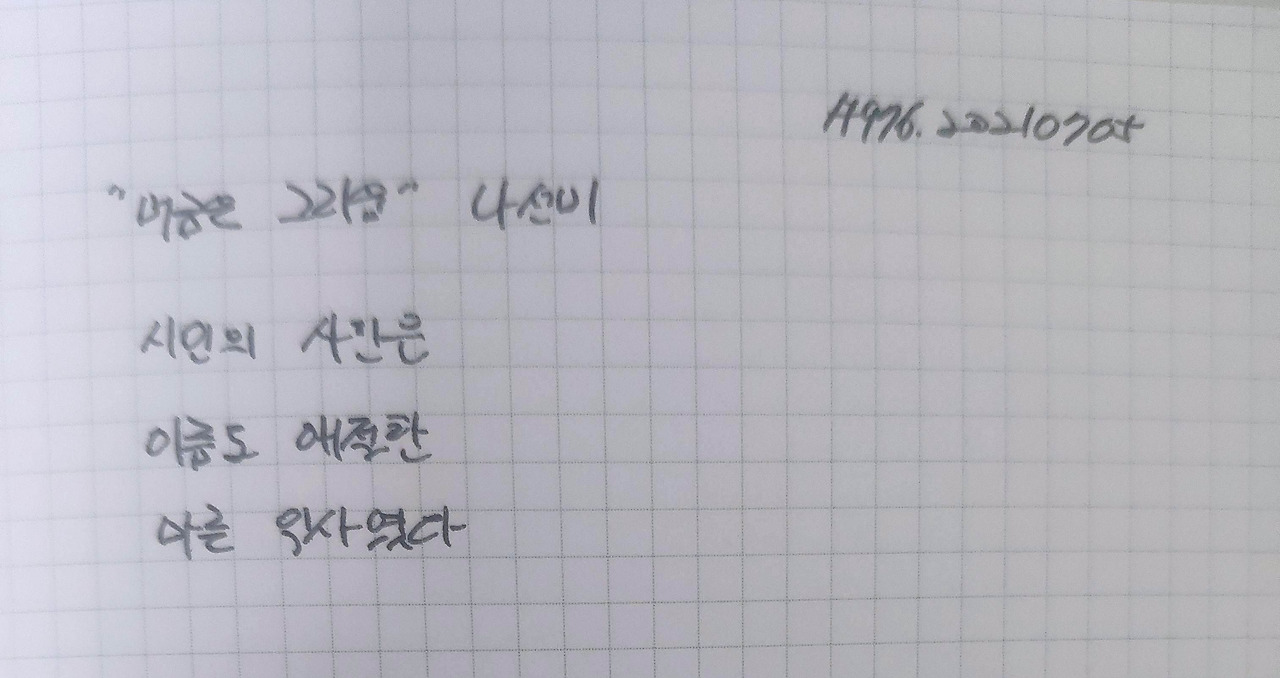 #976. 20210705
"머금은 그리움" 나선미
시인의 시간은
이름도 애절한
다른 역사였다